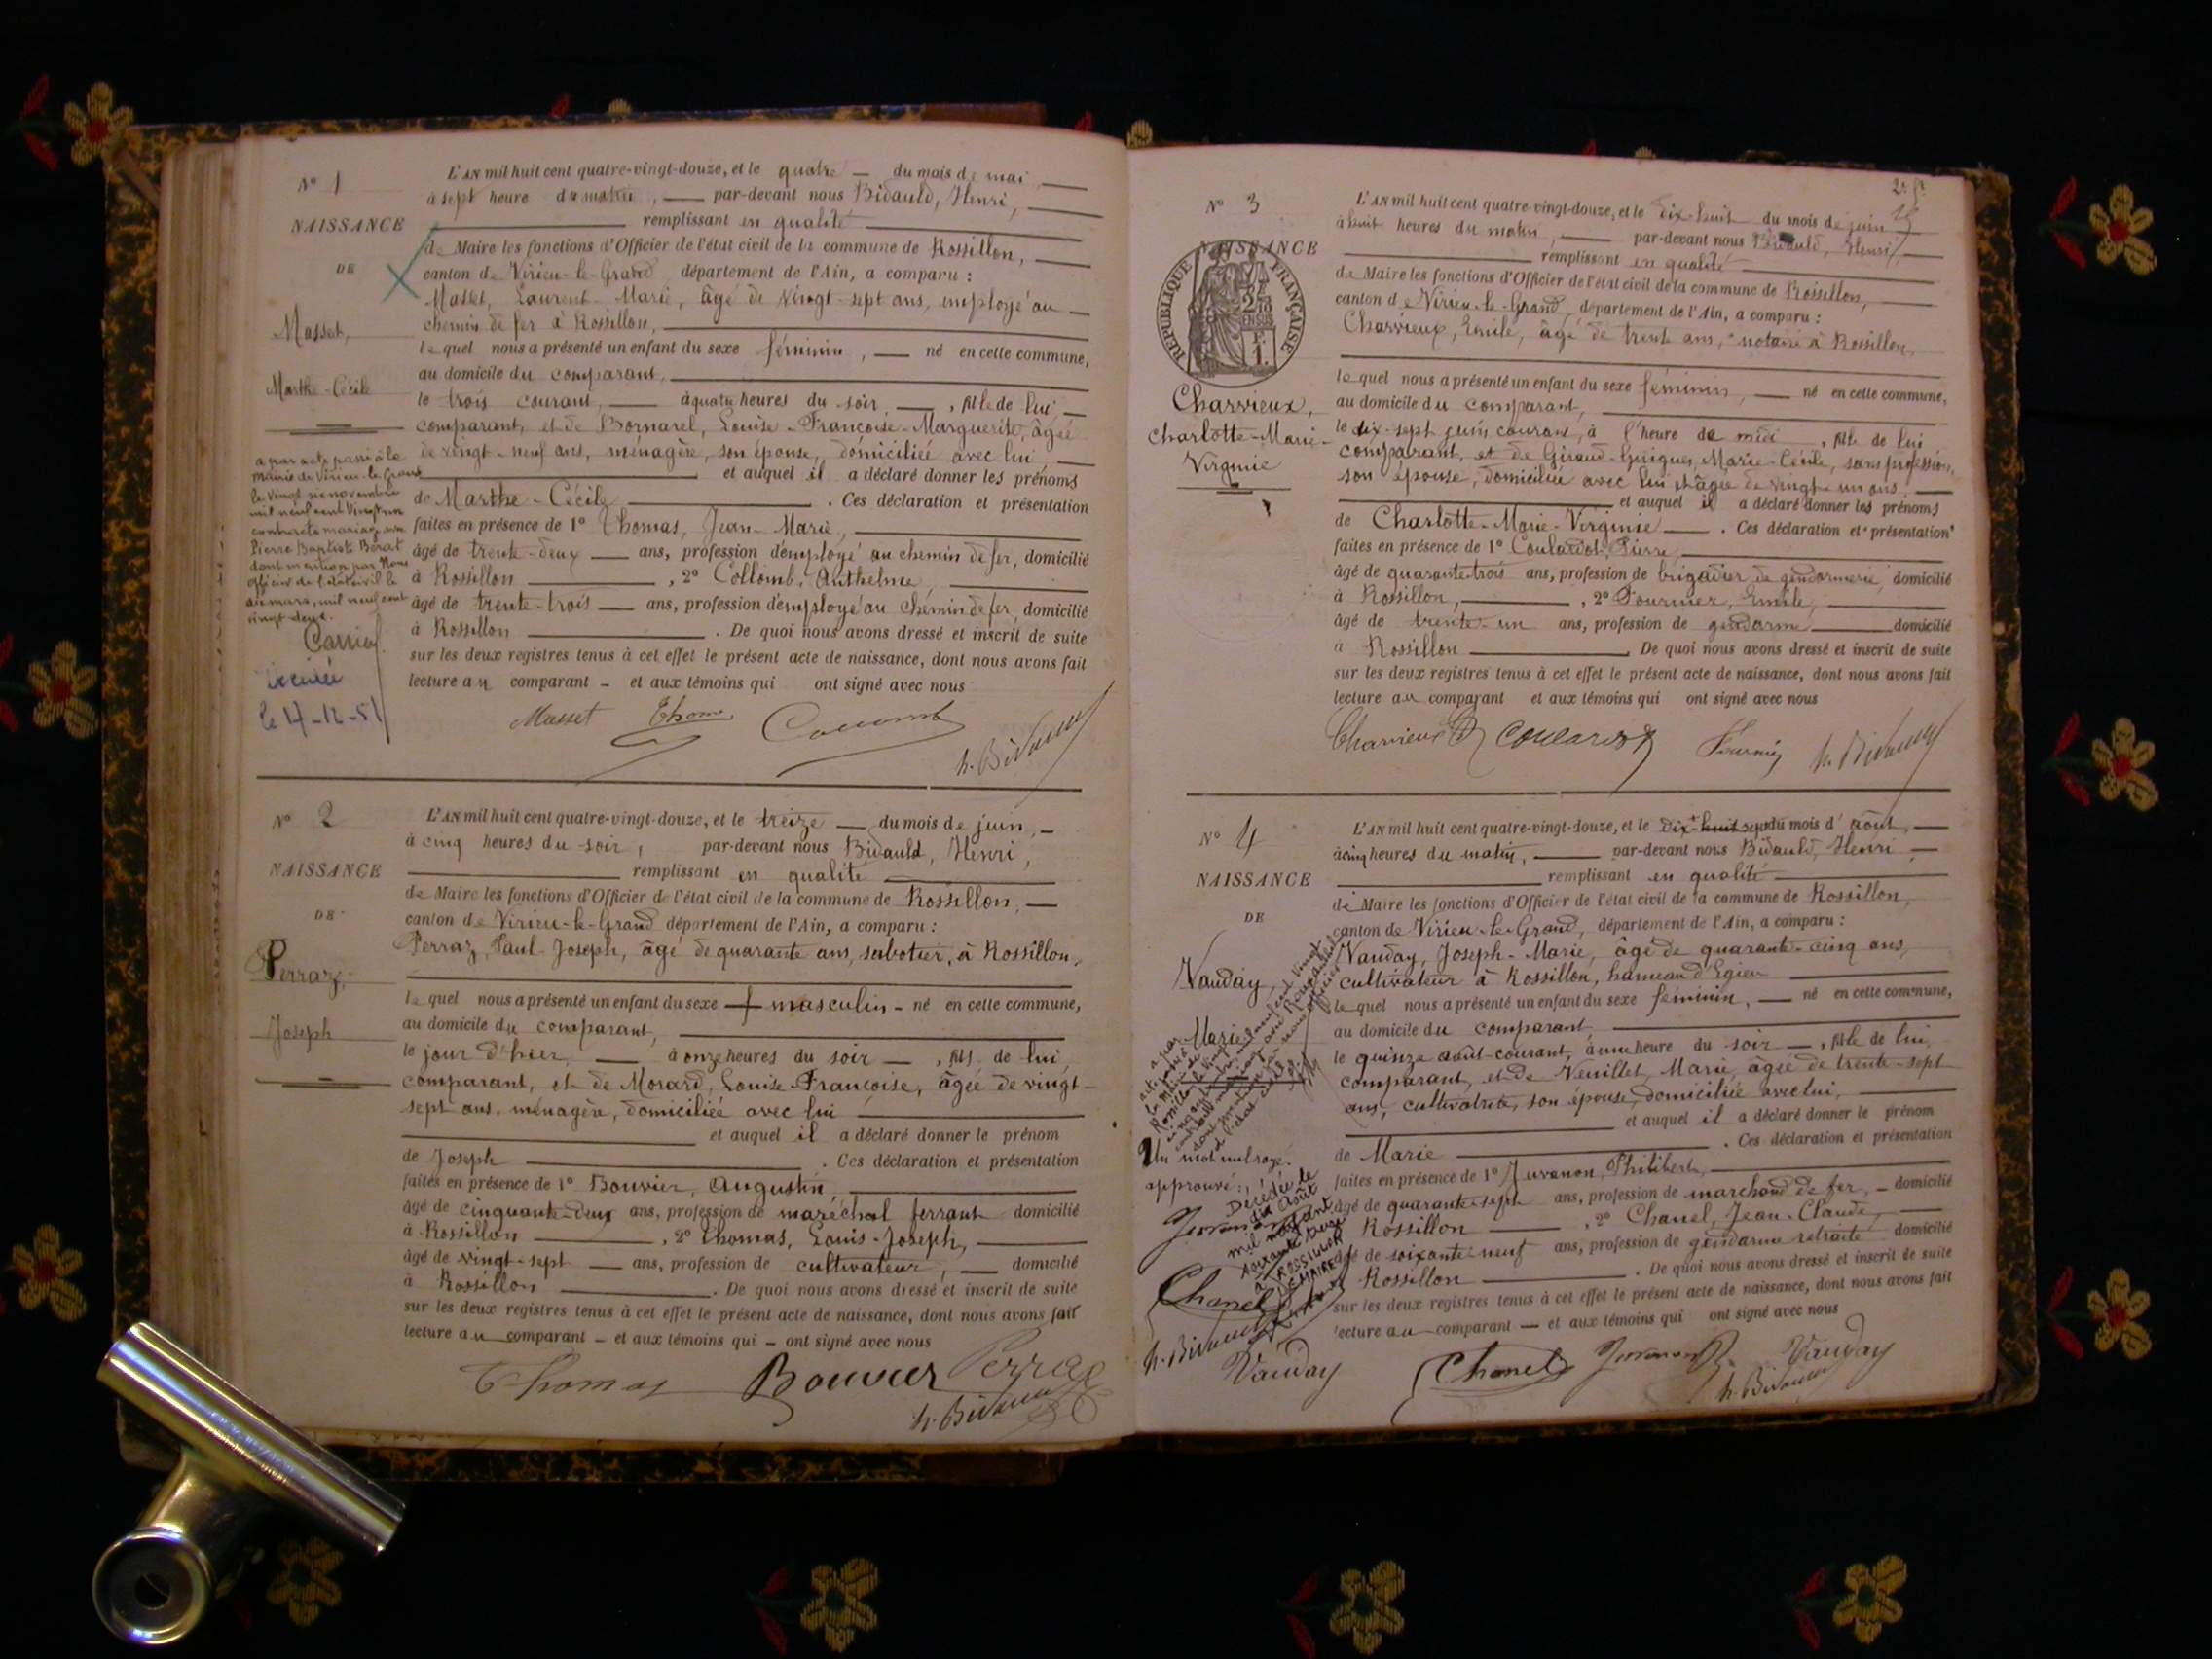 N° 1
NAISSANCE
DE
Masset,
Marthe-Cécile
L'AN mil huit cent quatre-vingt-douze, et le quatre du mois de mai,
à sept heure du matin, par-devant nous Bidauld, Henri,
remplissant en qualité
de Maire les fonctions d'Officier de l'état civil de la commune de Rossillon,
canton de Virieu-le-Grand département de l'Ain, a comparu :
Masset, Laurent-Marie, âgé de vingt-sept ans, employé au
chemin de fer à Rossillon,
lequel nous a présenté un enfant du sexe féminin, né en cette commune,
au domicile du comparant,
le trois courant, à quatre heures du soir, fille de lui
comparant, et de Bornarel, Louise-Françoise-Marguerite, âgée
de vingt-neuf ans, ménagère, son épouse, domiciliée avec lui
et auquel il a déclaré donner les prénoms
de Marthe-Cécile. Ces déclaration et présentation
faites en présence de 1° Thomas, Jean-Marie,
âgé de trente-deux ans, profession d'employé au chemin de fer, domicilié
à Rossillon, 2° Collomb, Anthelme,
âgé de trente-trois ans, profession d'employé au chemin de fer, domicilié
à Rossillon. De quoi nous avons dressé et inscrit de suite
sur les deux registres tenus à cet effet le présent acte de naissance, dont nous avons fait
lecture au comparant et aux témoins qui ont signé avec nous
Masset Thomas Collomb
h. Bidauld
a par acte passé à la
mairie de Virieu-le-Grand
le vingt six novembre
mil neuf cent vingt un
contracté mariage avec
Pierre Baptiste Bérat
dont mention par Nous
officier de l'état civil le
dix mars, mil neuf cent
vingt deux.
Carrier
décédée
le 4-12-51
N° 2
NAISSANCE
DE
Perraz,
Joseph
L'AN mil huit cent quatre-vingt-douze, et le treize du mois de juin,
à cinq heures du soir, par-devant nous Bidauld, Henri,
remplissant en qualité
de Maire les fonctions d'Officier de l'état civil de la commune de Rossillon,
canton de Virieu-le-Grand département de l'Ain, a comparu :
Perraz, Paul-Joseph, âgé de quarante ans, sabotier, à Rossillon,
lequel nous a présenté un enfant du sexe masculin né en cette commune,
au domicile du comparant,
le jour d'hier, à onze heures du soir, fils de lui,
comparant, et de Morard, Louise-Françoise, âgée de vingt-
sept ans, ménagère, domiciliée avec lui
et auquel il a déclaré donner le prénom
de Joseph. Ces déclaration et présentation
faites en présence de 1° Bouvier, Augustin,
âgé de cinquante-deux ans, profession de maréchal ferrant domicilié
à Rossillon, 2° Thomas, Louis-Joseph,
âgé de vingt-sept ans, profession de cultivateur, domicilié
à Rossillon. De quoi nous avons dressé et inscrit de suite
sur les deux registres tenus à cet effet le présent acte de naissance, dont nous avons fait
lecture au comparant et aux témoins qui ont signé avec nous
Thomas Bouvier Perraz
h. Bidauld
N° 3
NAISSANCE
RÉPUBLIQUE FRANÇAISE
Charvieux,
Charlotte-Marie-
Virginie
L'AN mil huit cent quatre-vingt-douze, et le dix-huit du mois de juin
à huit heures du matin, par-devant nous Bidauld, Henri,
remplissant en qualité
de Maire les fonctions d'Officier de l'état civil de la commune de Rossillon,
canton de Virieu-le-Grand, département de l'Ain, a comparu :
Charvieux, Emile, âgé de trente ans, notaire à Rossillon,
lequel nous a présenté un enfant du sexe féminin, né en cette commune,
au domicile du comparant,
le dix-sept juin courant, à l'heure de midi, fille de lui
comparant, et de Giraud-Guigues, Marie-Cécile, sans profession,
son épouse, domiciliée avec lui et âgée de vingt-un ans.
et auquel il a déclaré donner les prénoms
de Charlotte-Marie-Virginie. Ces déclaration et présentation
faites en présence de 1° Coulardot, Pierre,
âgé de quarante-trois ans, profession de brigadier de gendarmerie, domicilié
à Rossillon, 2° Fournier, Emile,
âgé de trente-un ans, profession de gendarme domicilié
à Rossillon. De quoi nous avons dressé et inscrit de suite
sur les deux registres tenus à cet effet le présent acte de naissance, dont nous avons fait
lecture au comparant et aux témoins qui ont signé avec nous
Charvieux Coulardot Fournier h. Bidauld
N° 4
NAISSANCE
DE
Vauday,
Marie
L'AN mil huit cent quatre-vingt-douze, et le dix-huit sept du mois d'août,
à cinq heures du matin, par-devant nous Bidauld, Henri,
remplissant en qualité
de Maire les fonctions d'Officier de l'état civil de la commune de Rossillon,
canton de Virieu-le-Grand, département de l'Ain, a comparu :
Vauday, Joseph-Marie, âgé de quarante-cinq ans,
cultivateur à Rossillon, hameau d'Egieu
lequel nous a présenté un enfant du sexe féminin, né en cette commune,
au domicile du comparant
le quinze août courant, à une heure du soir, fille de lui,
comparant, et de Veuillet, Marie, âgée de trente-sept
ans, cultivatrice, son épouse, domiciliée avec lui,
et auquel il a déclaré donner le prénom
de Marie. Ces déclaration et présentation
faites en présence de 1° Juvanon, Philibert,
âgé de quarante-sept ans, profession de marchand de fer, domicilié
Rossillon, 2° Chanel, Jean-Claude,
âgé de soixante-neuf ans, profession de gendarme retraité domicilié
Rossillon. De quoi nous avons dressé et inscrit de suite
sur les deux registres tenus à cet effet le présent acte de naissance, dont nous avons fait
lecture au comparant et aux témoins qui ont signé avec nous
Chanel Juvanon Vauday
h. Bidauld
Un mot nul rayé.
approuvé :
Décédée le
dix août
mil neuf cent
soixante treize
à ROSSILLON
LE MAIRE
Juvanon
Chanel
h. Bidauld
Vauday